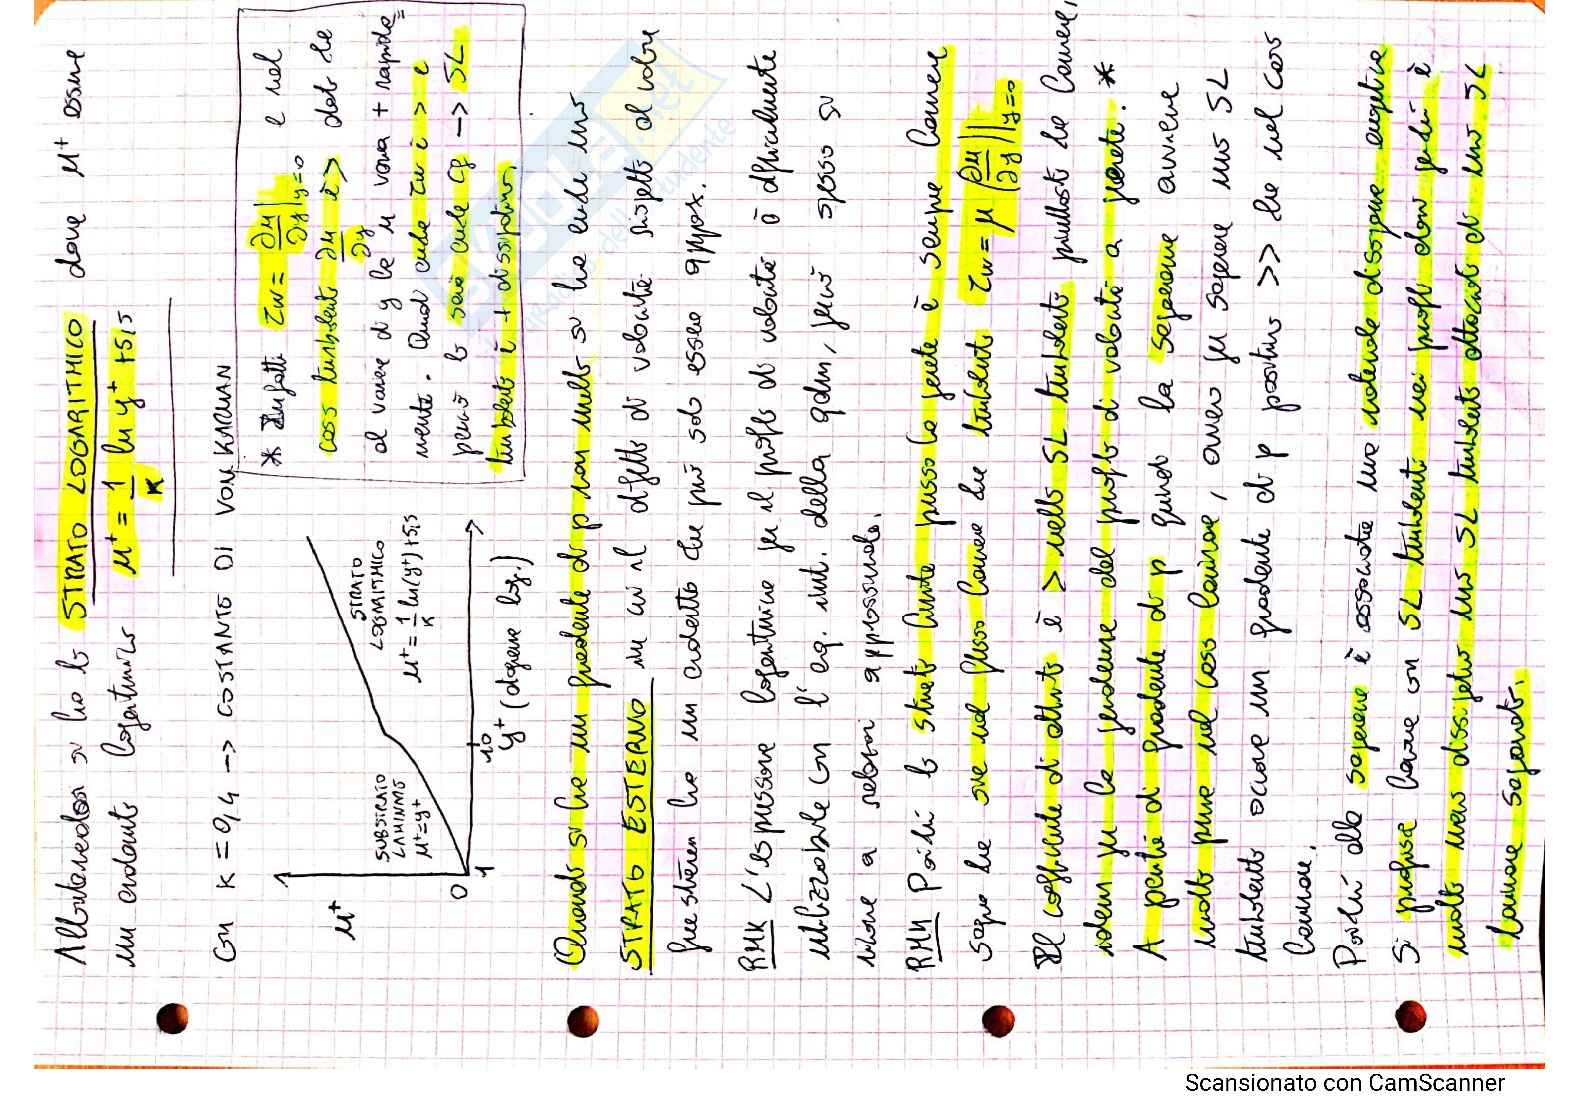 Allontanandosi si ha lo STRATO LOGARITMICO dove u⁺ assume
un andamento logaritmico u⁺ = 1/K ln y⁺ + 5,5
Con K = 0,4 -> COSTANTE DI VON KARMAN
u⁺
SUBSTRATO
LAMINARE
u⁺ = y⁺
STRATO
LOGARITMICO
u⁺ = 1/K ln(y⁺) + 5,5
0
1
10
y⁺ (diagramma log.)
* Infatti τw = ∂u/∂y|y=0 e nel
caso turbolento ∂u/∂y è > dato che
al variare di y la u varia + rapida=
mente. Quindi anche τw è > e
perciò lo sarà anche Cf -> SL
turbolento è + dissipativo.
Quando si ha un gradiente di p non nullo si ha anche uno
STRATO ESTERNO in cui il difetto di velocità rispetto al valore
free stream ha un andamento che può solo essere approx.
RMK L'espressione logaritmica per il profilo di velocità è difficilmente
utilizzabile con l'eq. int. della qdm, perciò spesso si
ricorre a relazioni approssimate.
RMK Poichè lo strato limite presso la parete è sempre laminare
segue che sia nel flusso laminare che turbolento τw = μ (∂u/∂y)|y=0
Il coefficiente di attrito è > nello SL turbolento piuttosto che laminare,
idem per la pendenza del profilo di velocità a parete. *
A parità di gradiente di p quindi la separazione avviene
molto prima nel caso laminare, ovvero per separare uno SL
turbolento occorre un gradiente di p positivo >> che nel caso
laminare.
Poichè alla separazione è associata una notevole dissipazione energetica
Si preferisce lavorare con SL turbolenti nei profili alari perchè è
molto meno dissipativo uno SL turbolento attaccato di uno SL
laminare separato.
Scansionato con CamScanner